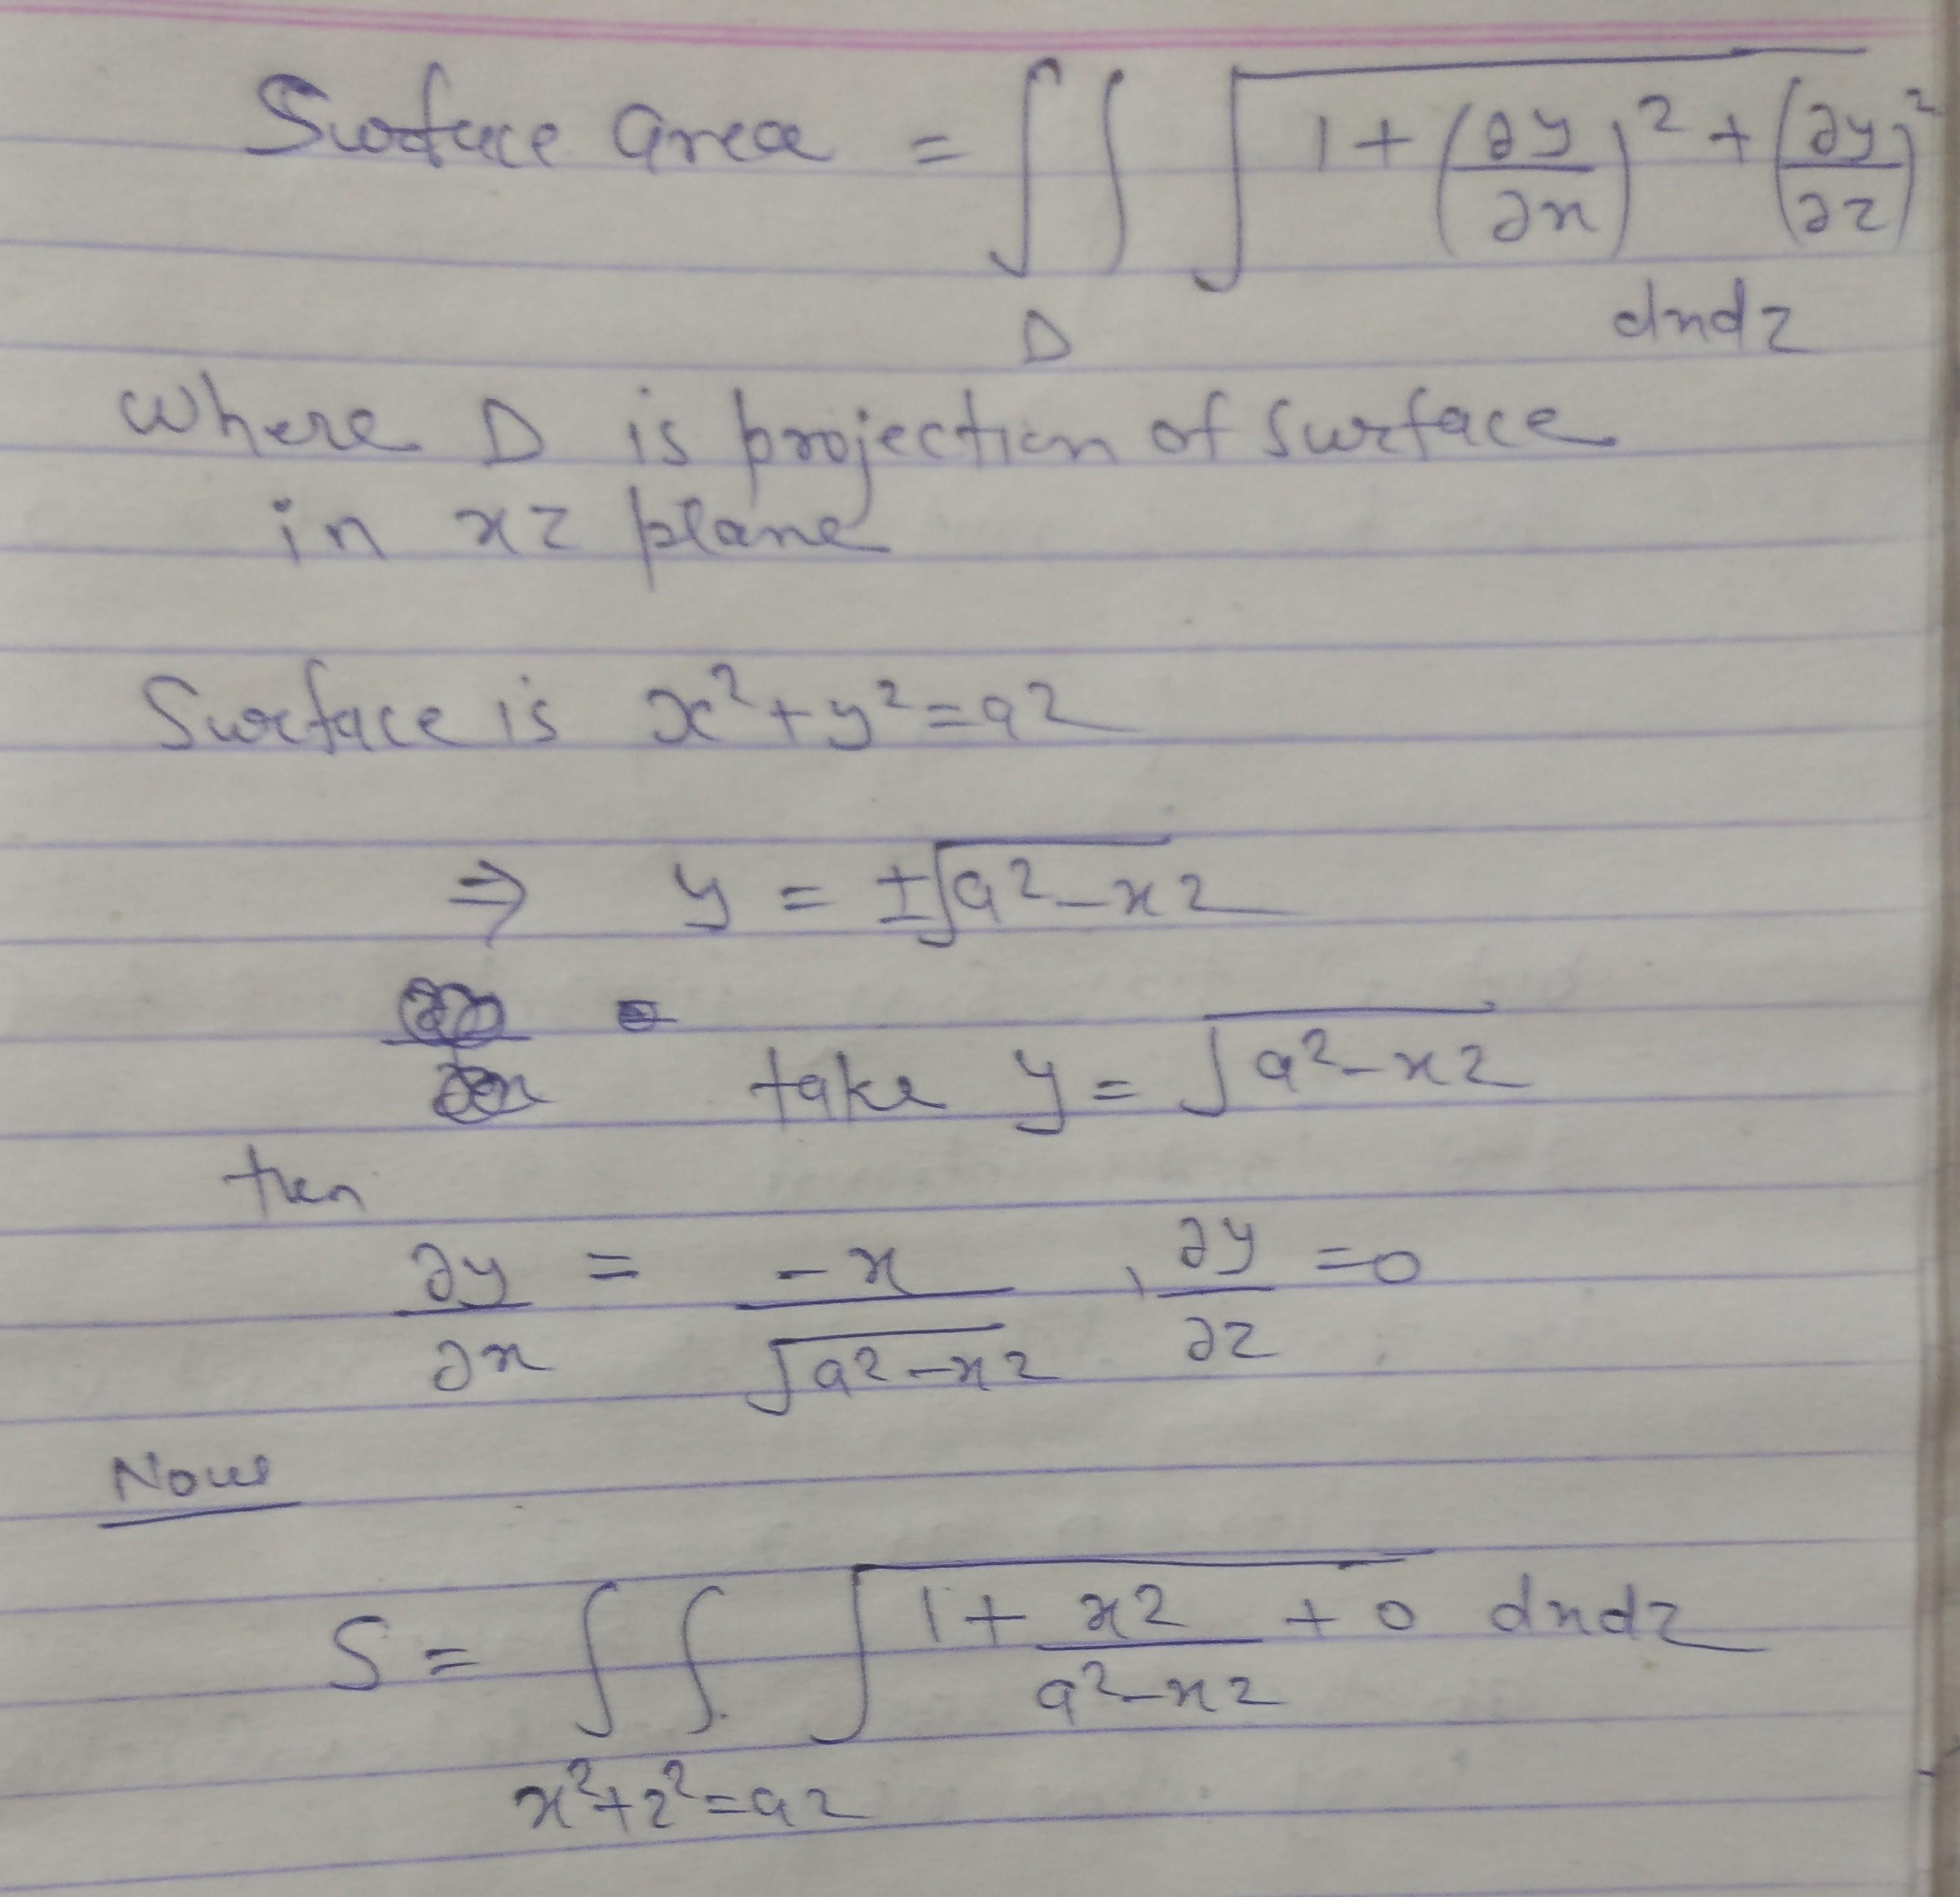 Surface area = ∫∫ √(1 + (∂y/∂x)² + (∂y/∂z)²)
D dxdz
where D is projection of surface
in xz plane
Surface is x² + y² = a²
⇒ y = ±√(a² - x²)
take y = √(a² - x²)
then
∂y/∂x = -x/√(a² - x²) , ∂y/∂z = 0
Now
S = ∫∫ √(1 + x²/(a² - x²) + 0) dxdz
x² + z² = a²